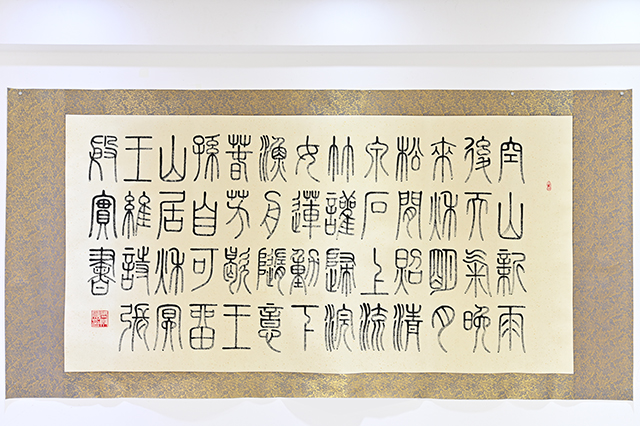 空山新雨
後天氣晚
來秋明月
松閒照清
泉石上流
竹讙歸浣
女蓮動下
漁舟隨意
春芳歇王
孫自可留
山居秋冥
王維詩張
殷實書